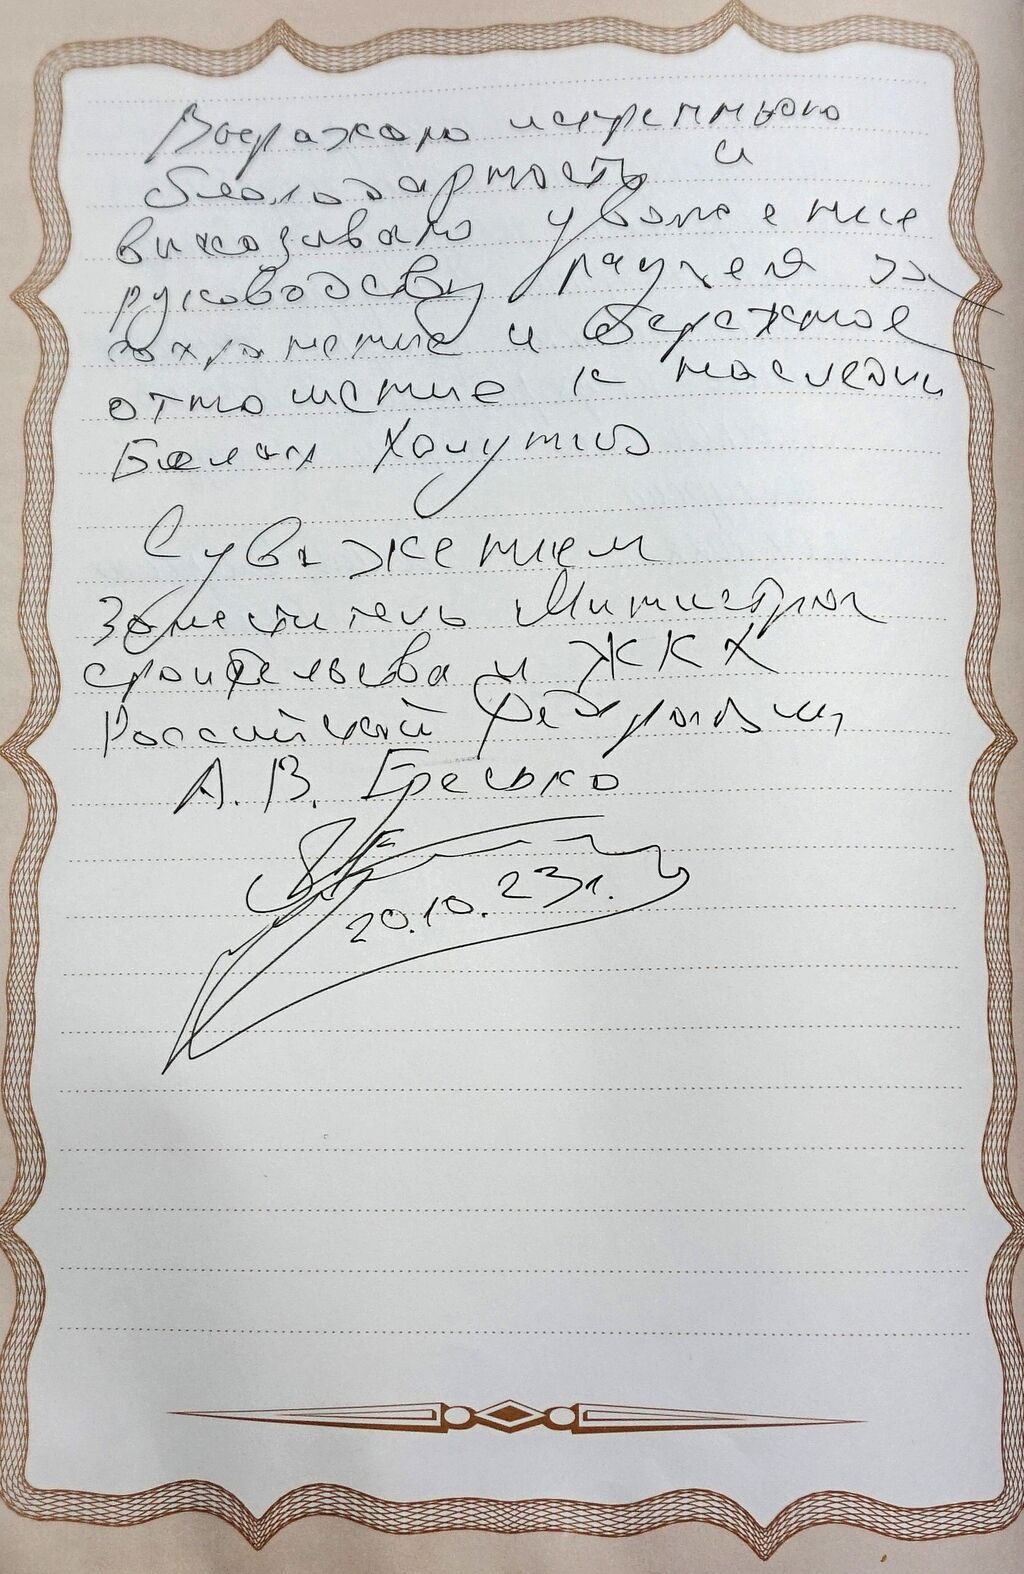 Выражаю искреннюю
благодарность и
высказываю уважение
руководству музея за
сохранение и бережное
отношение к наследию
Беллы
С уважением
Заместитель Министра
строительства и ЖКХ
Российской Федерации
А.В. Ересько
20.10.23г.